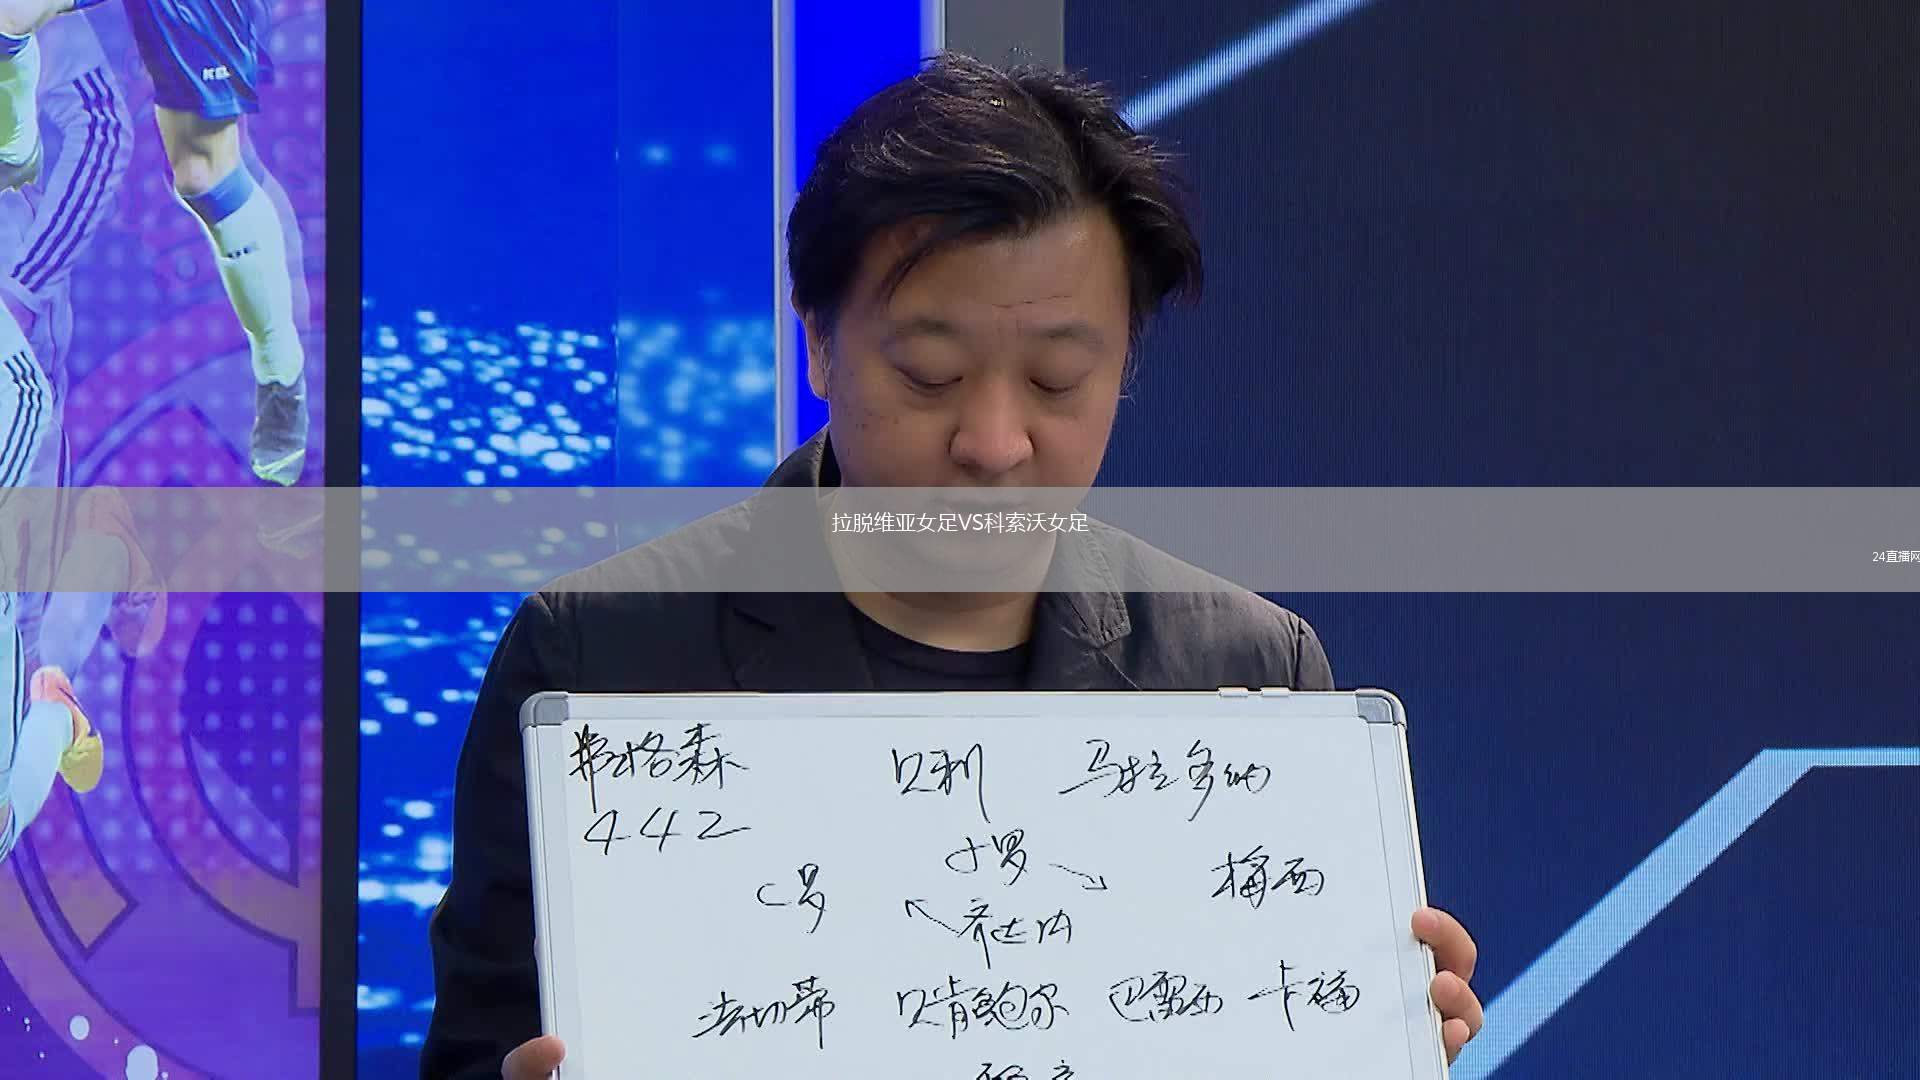 拉脱维亚女足VS科索沃女足
24直播网
弗格森 贝利 马拉多纳
442
小罗
C罗 梅西
齐达内
法切蒂 贝肯鲍尔 巴雷西 卡福